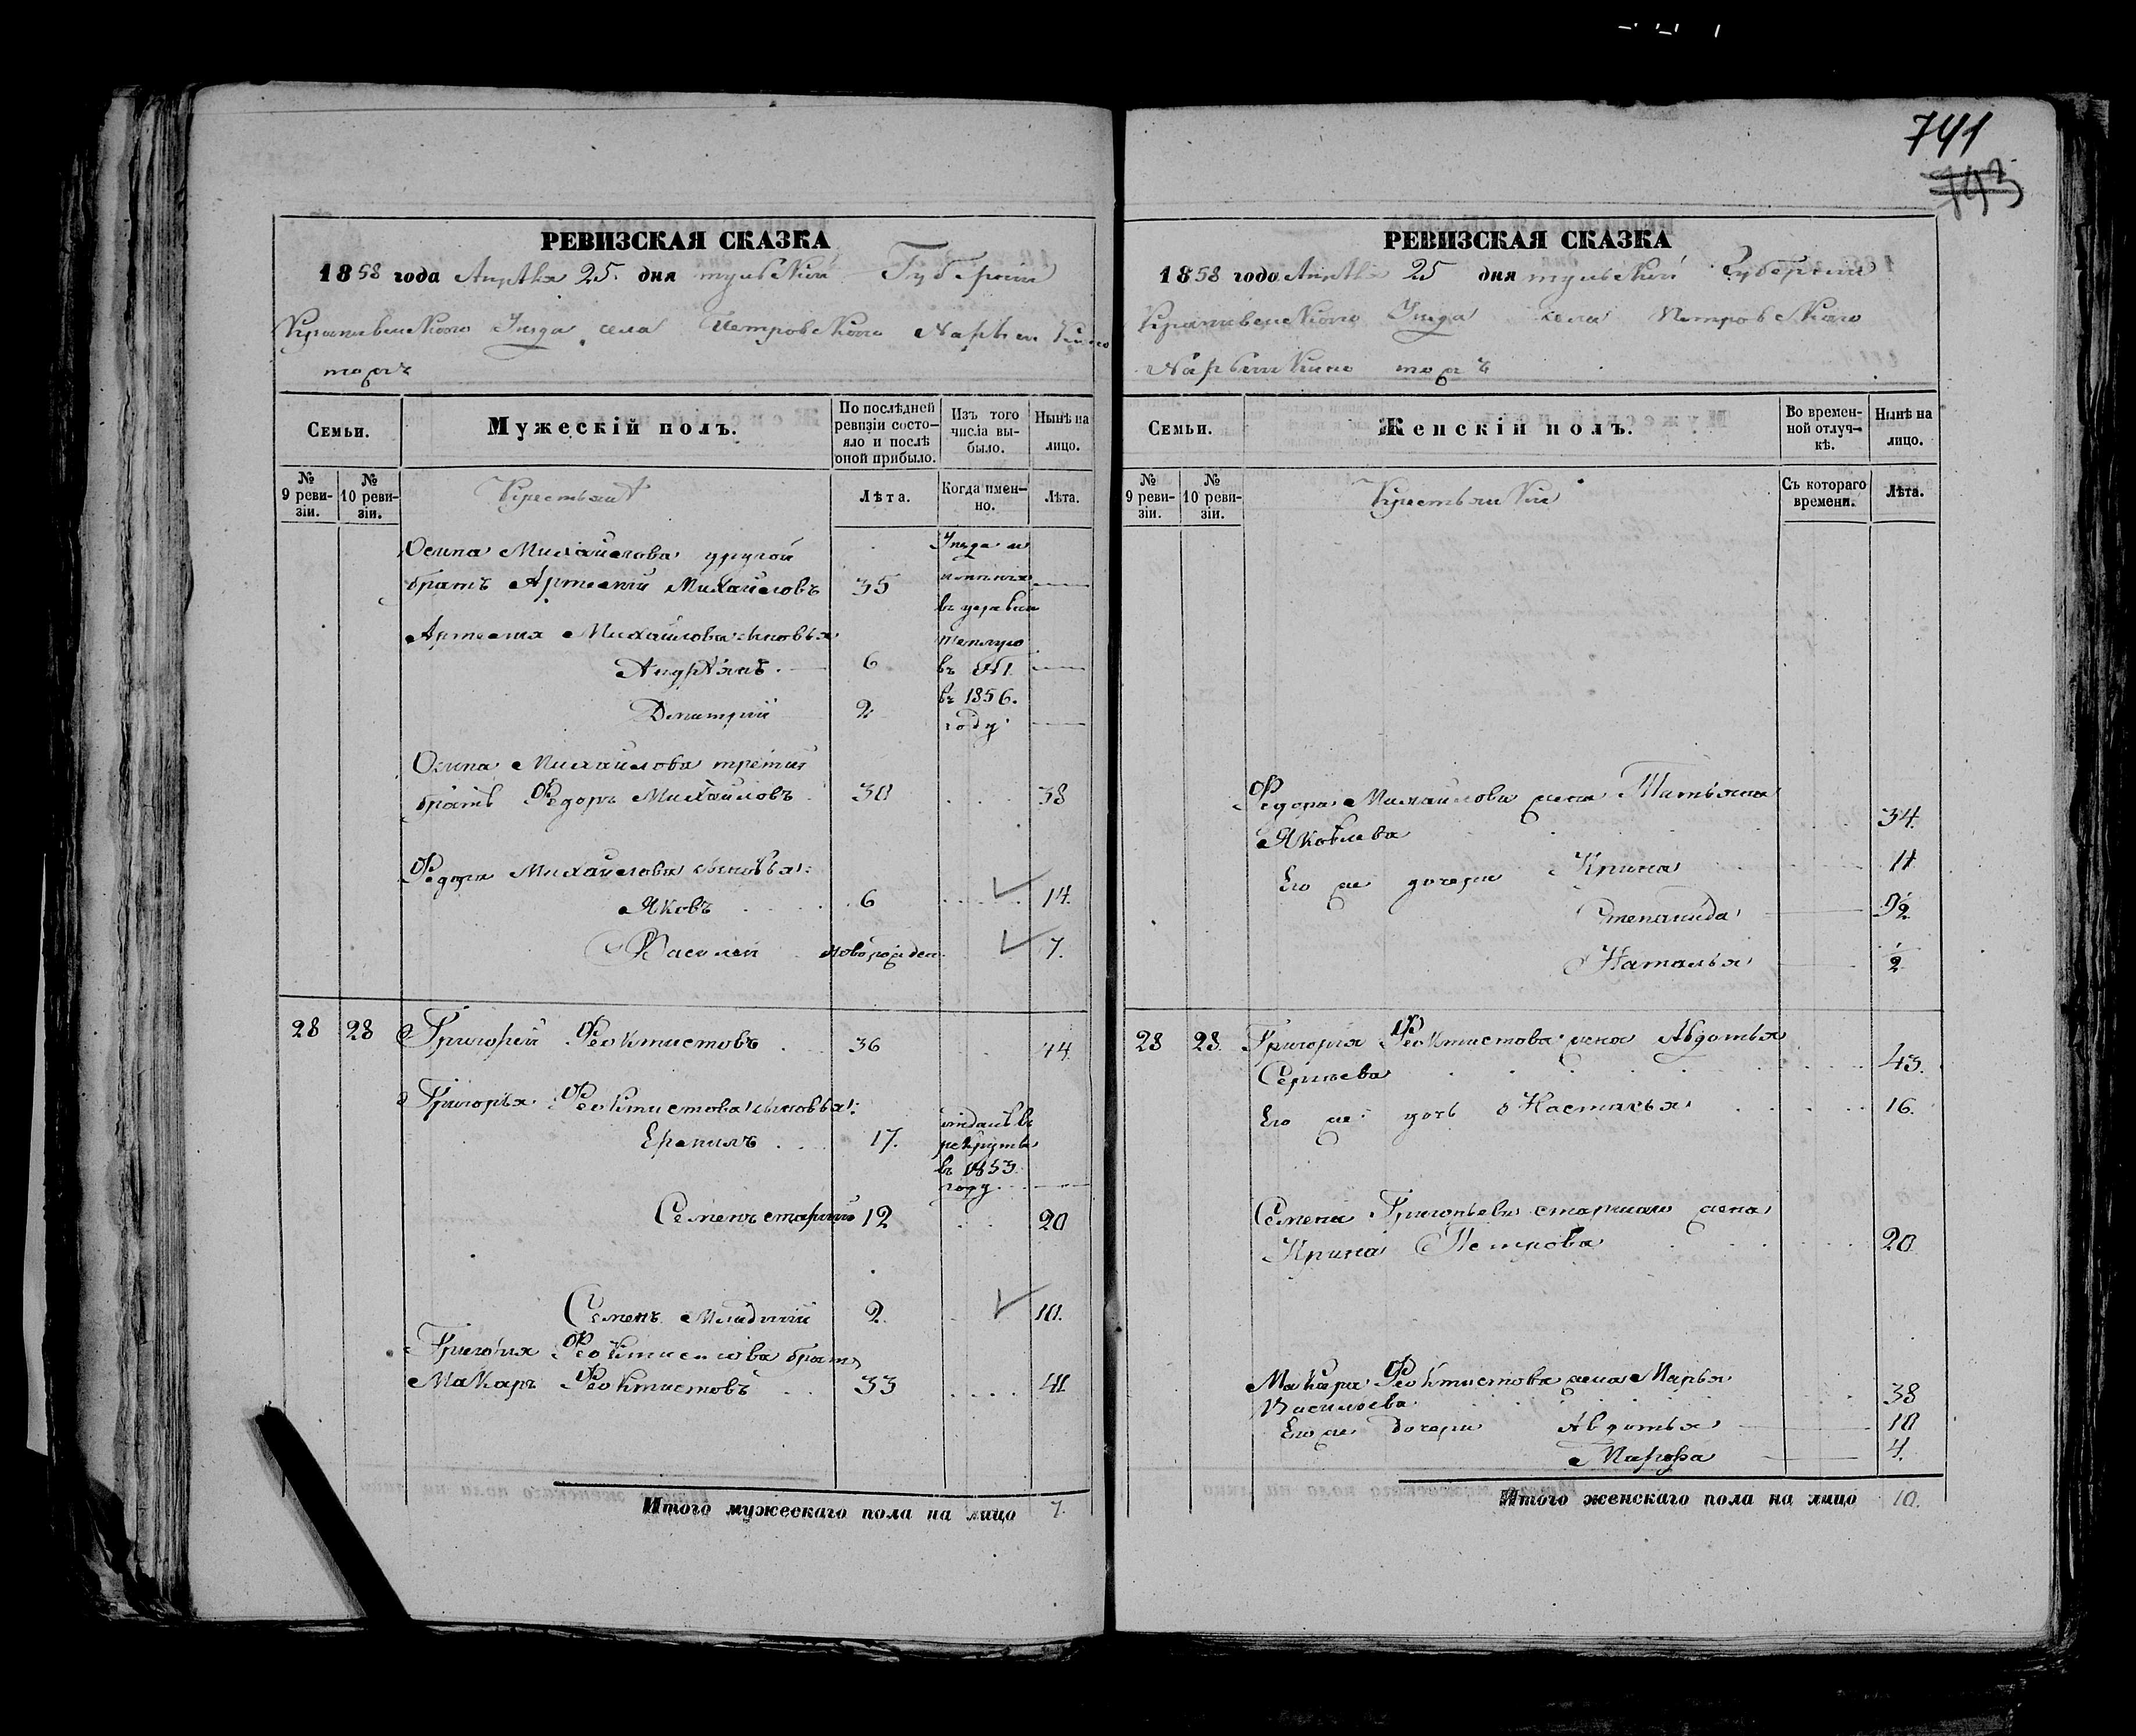 741
743
РЕВИЗСКАЯ СКАЗКА
1858 года Апрѣля 25 дня Тульской Губернiи
Крапивенскаго Уѣзда села Петровскаго
тожъ
Семьи.
Мужескiй полъ.
По послѣдней ревизiи состояло и послѣ оной прибыло.
Изъ того числа выбыло.
Нынѣ на лицо.
№ 9 ревизiи.
№ 10 ревизiи.
Крестьянѣ
Лѣта.
Когда именно.
Лѣта.
Осипа Михайлова другой
братъ Артемiй Михайловъ 35
Артемiя Михайлова сыновья
Андрѣянъ 6
Дмитрiй 2
Уѣзда
въ
въ 1856.
году
Осипа Михайлова третiй
братъ Федоръ Михайловъ 30 38
Федора Михайлова сыновья:
Яковъ 6 14.
Василiй новорожден. 7.
28 28 Григорiй Феоктистовъ 36 44.
Григорья Феоктистова сыновья:
Ерапилъ 17. отданъ въ
рекруты
въ 1853
году
Семенъ старшiй 12 20
Семенъ младшiй 2. 10.
Григорiя Феоктистова братъ
Макаръ Феоктистовъ 33 41
Итого мужескаго пола на лицо 7.
РЕВИЗСКАЯ СКАЗКА
1858 года Апрѣля 25 дня Тульской Губернiи
Крапивенскаго Уѣзда села Петровскаго
тожъ
Семьи.
Женскiй полъ.
Во временной отлучкѣ.
Нынѣ на лицо.
№ 9 ревизiи.
№ 10 ревизiи.
Крестьянки
Съ котораго времени.
Лѣта.
Федора Михайлова жена Татьяна
Яковлева 34.
Его же дочери Ирина 11
Степанида 9½
Наталья ½
28 28. Григорiя Феоктистова жена Авдотья
Сергѣева 43.
Его же дочь Настасья 16.
Семена Григорьева старшаго жена
Ирина Петрова 20
Макара Феоктистова жена Марья
Васильева 38
Его же дочери Авдотья 10
Марфа 4.
Итого женскаго пола на лицо 10.